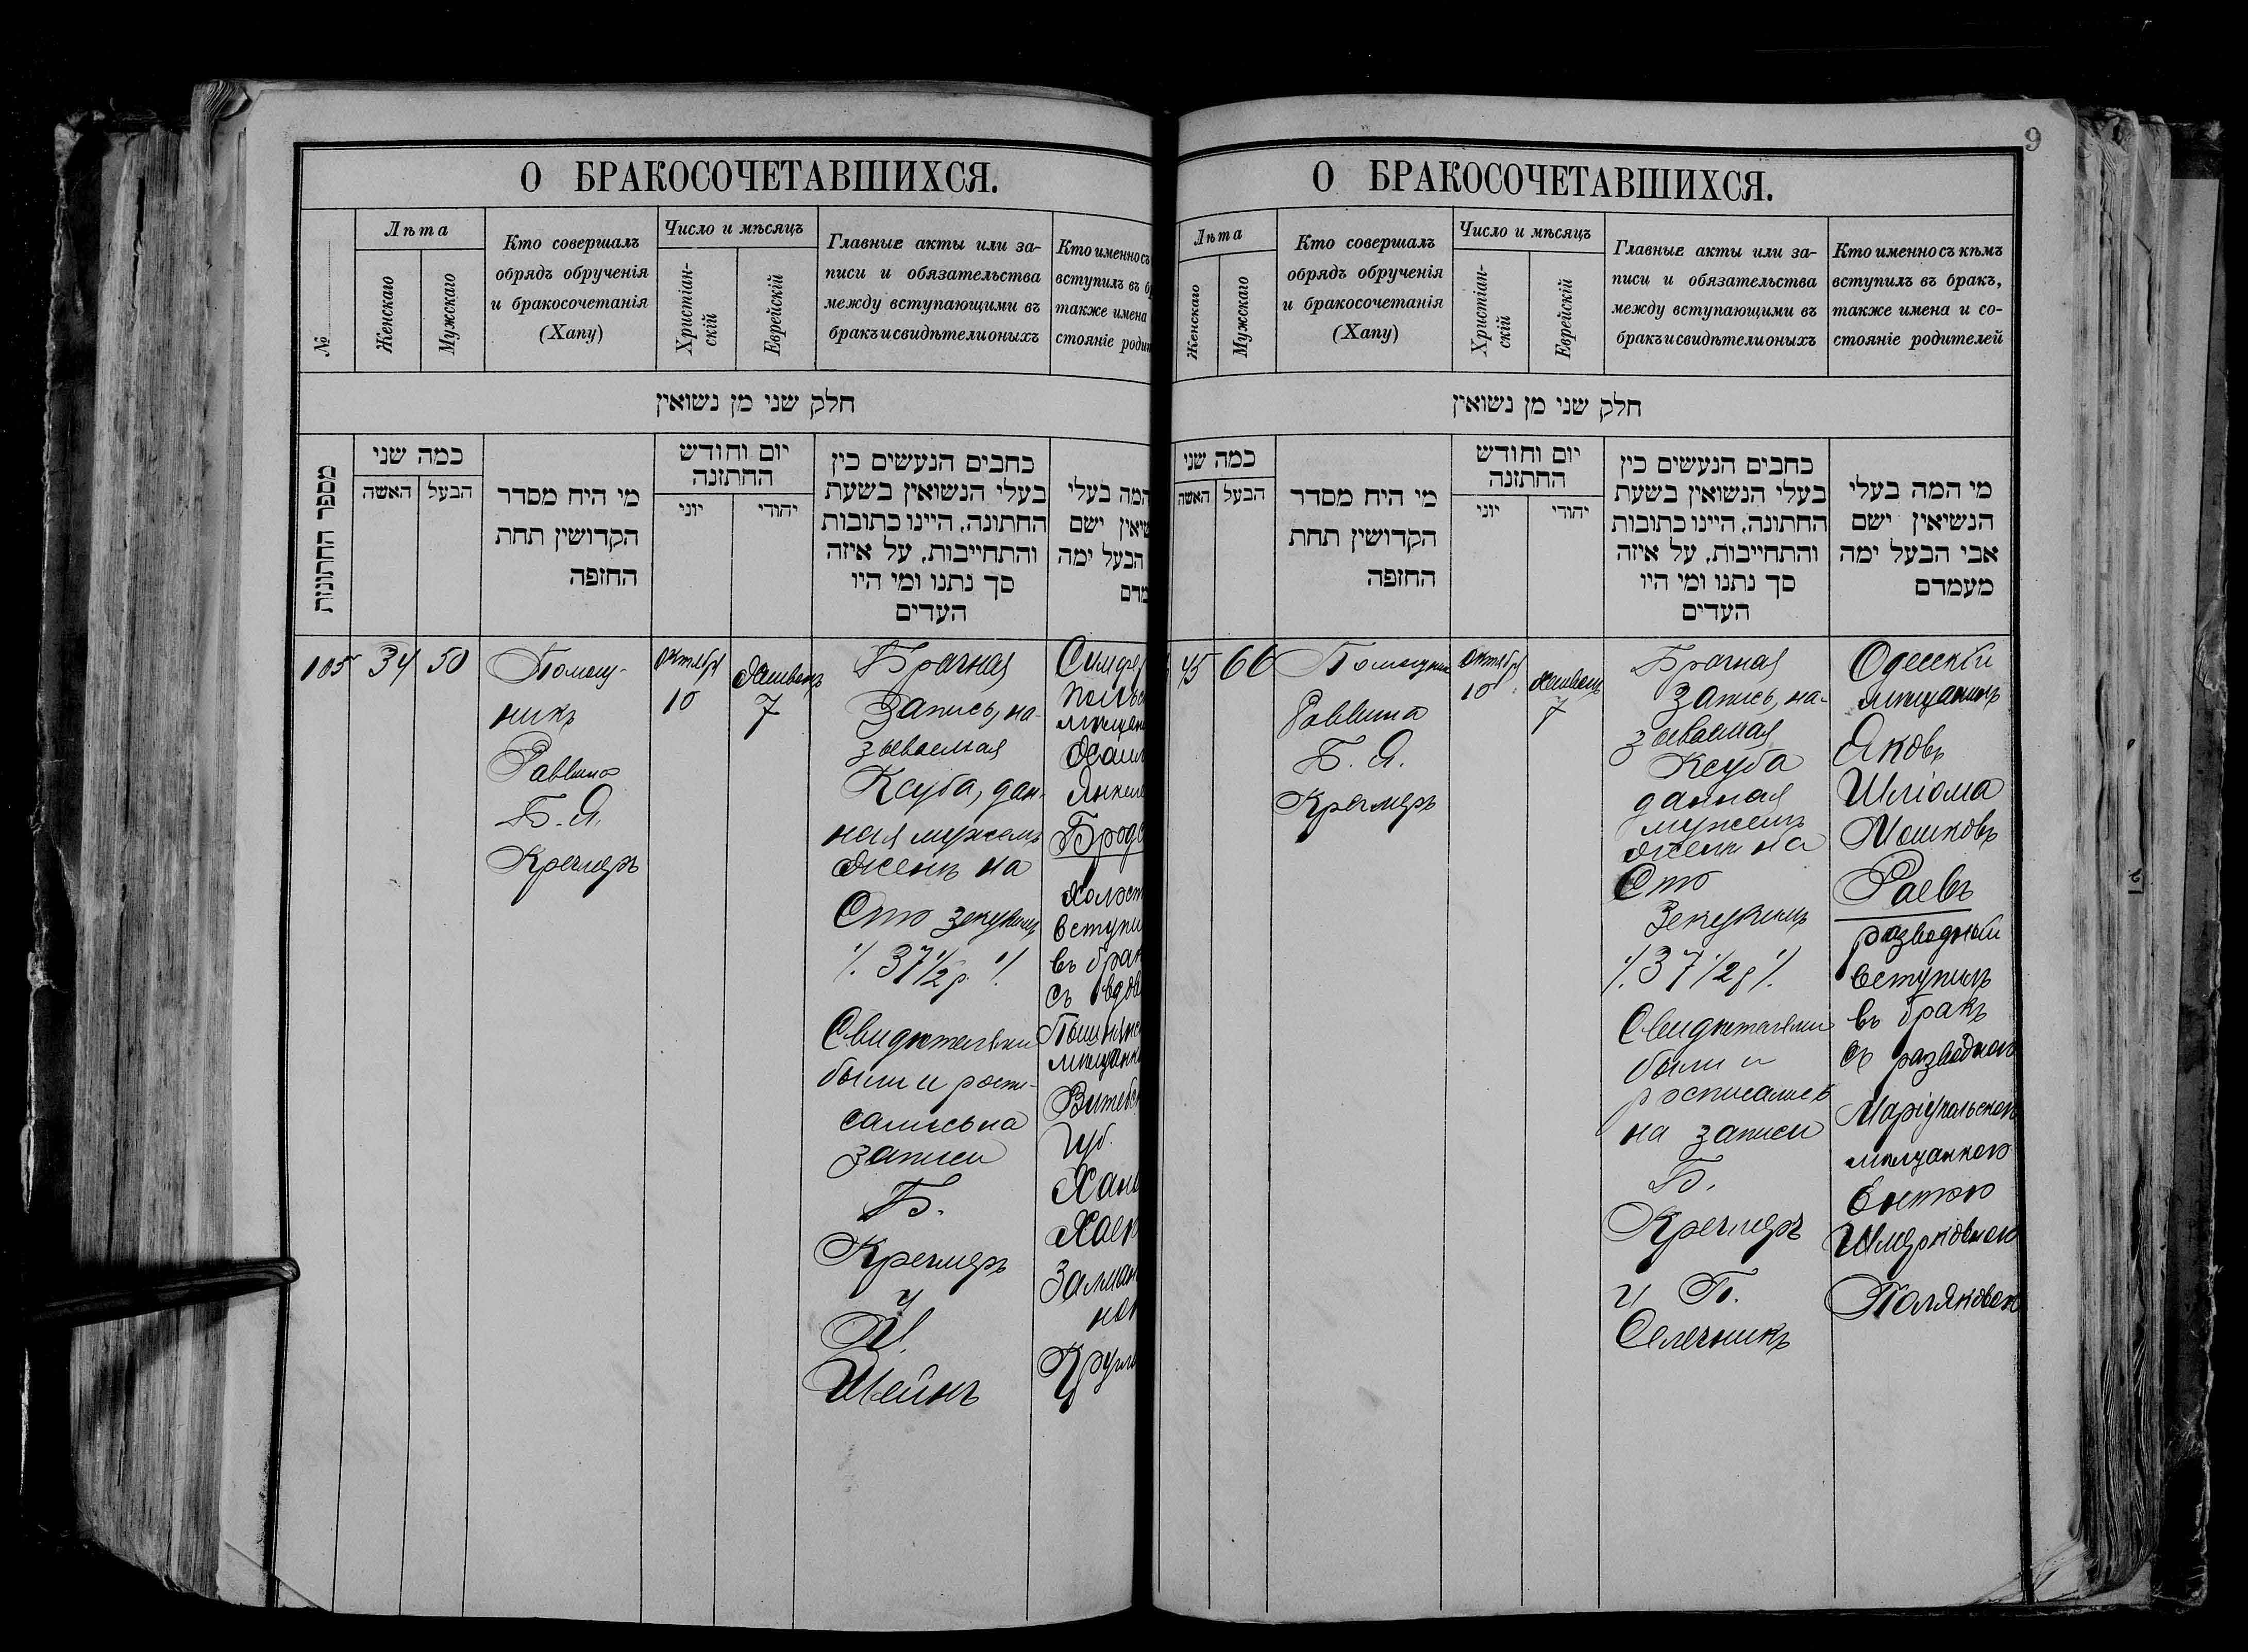 О БРАКОСОЧЕТАВШИХСЯ.
№
Лѣта
Женскаго
Мужскаго
Кто совершалъ
обрядъ обрученія
и бракосочетанія
(Хапу)
Число и мѣсяцъ
Христіан-
скій
Еврейскій
Главные акты или за-
писи и обязательства
между вступающими въ
бракъ и свидѣтели оныхъ
Кто именно съ
вступилъ въ б
также имена
стояніе роди
חלק שני מן נשואין
מספר החתונות
כמה שני
האשה
הבעל
מי היח מסדר
הקדושין תחת
החזפה
יום וחודש
החתזנה
יוני
יהודי
כחבים הנעשים כין
בעלי הנשואין בשעת
החתונה, היינו כתובות
והתחייבות, על איזה
סך נתנו ומי היו
העדים
המה בעלי
שיאין ישם
הבעל ימה
מדם
105
34
50
Помощ-
никъ
Раввина
Б. Я.
Кремеръ
Октября
10
Хешванъ
7
Брачная
Запись, на-
зываемая
Ксуба, дан-
ная мужемъ
женѣ на
Сто зекукимъ
·/. 37 1/2 р ·/.
Свидѣтелями
были и роспи-
сались на
записи
Б.
Кремеръ
и
И.
Шейнъ
Симфер
польс
мѣщани
Хаим
Янкел
Бродс
холост
вступи
въ бра
съ вдов
мѣщанк
Витебск
губ.
Хано
Хаен
Залман
ног
Кругл
9
О БРАКОСОЧЕТАВШИХСЯ.
Лѣта
Женскаго
Мужскаго
Кто совершалъ
обрядъ обрученія
и бракосочетанія
(Хапу)
Число и мѣсяцъ
Христіан-
скій
Еврейскій
Главные акты или за-
писи и обязательства
между вступающими въ
бракъ и свидѣтели оныхъ
Кто именно съ кѣмъ
вступилъ въ бракъ,
также имена и со-
стояніе родителей
חלק שני מן נשואין
כמה שני
האשה
הבעל
מי היח מסדר
הקדושין תחת
החזפה
יום וחודש
החתזנה
יוני
יהודי
כחבים הנעשים כין
בעלי הנשואין בשעת
החתונה, היינו כתובות
והתחייבות, על איזה
סך נתנו ומי היו
העדים
מי המה בעלי
הנשיאין ישם
אבי הבעל ימה
מעמדם
45
66
Помощникъ
Раввина
Б. Я.
Кремеръ
Октября
10
Хешванъ
7
Брачная
Запись, на-
зываемая
Ксуба
данная
мужемъ
женѣ на
Сто
Зекукимъ
·/. 37 1/2 р ·/.
Свидѣтелями
были и
росписались
на записи
Б.
Кремеръ
и П.
Олечникъ
Одесскій
мѣщанинъ
Яковъ
Шліома
Мошковъ
Раевъ
разводный
вступилъ
въ бракъ
съ разводною
Маріупольскою
мѣщанкою
Ентою
Шмерковною
Поляковою